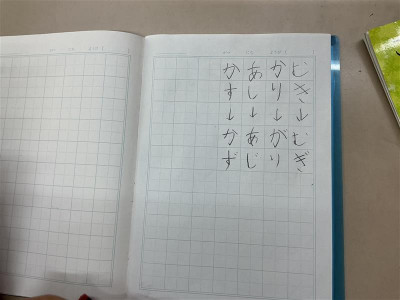 むき↓むぎ
かり↓がり
あし↓あじ
かす↓かず